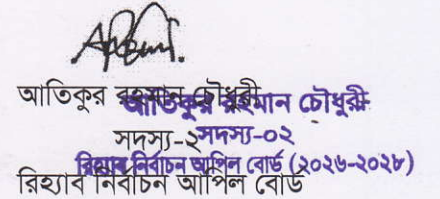 আতিকুর রহমান চৌধুরী
আতিকুর রহমান চৌধুরী
সদস্য-২
সদস্য-০২
রিহ্যাব নির্বাচন আপিল বোর্ড (২০২৬-২০২৮)
রিহ্যাব নির্বাচন আপিল বোর্ড